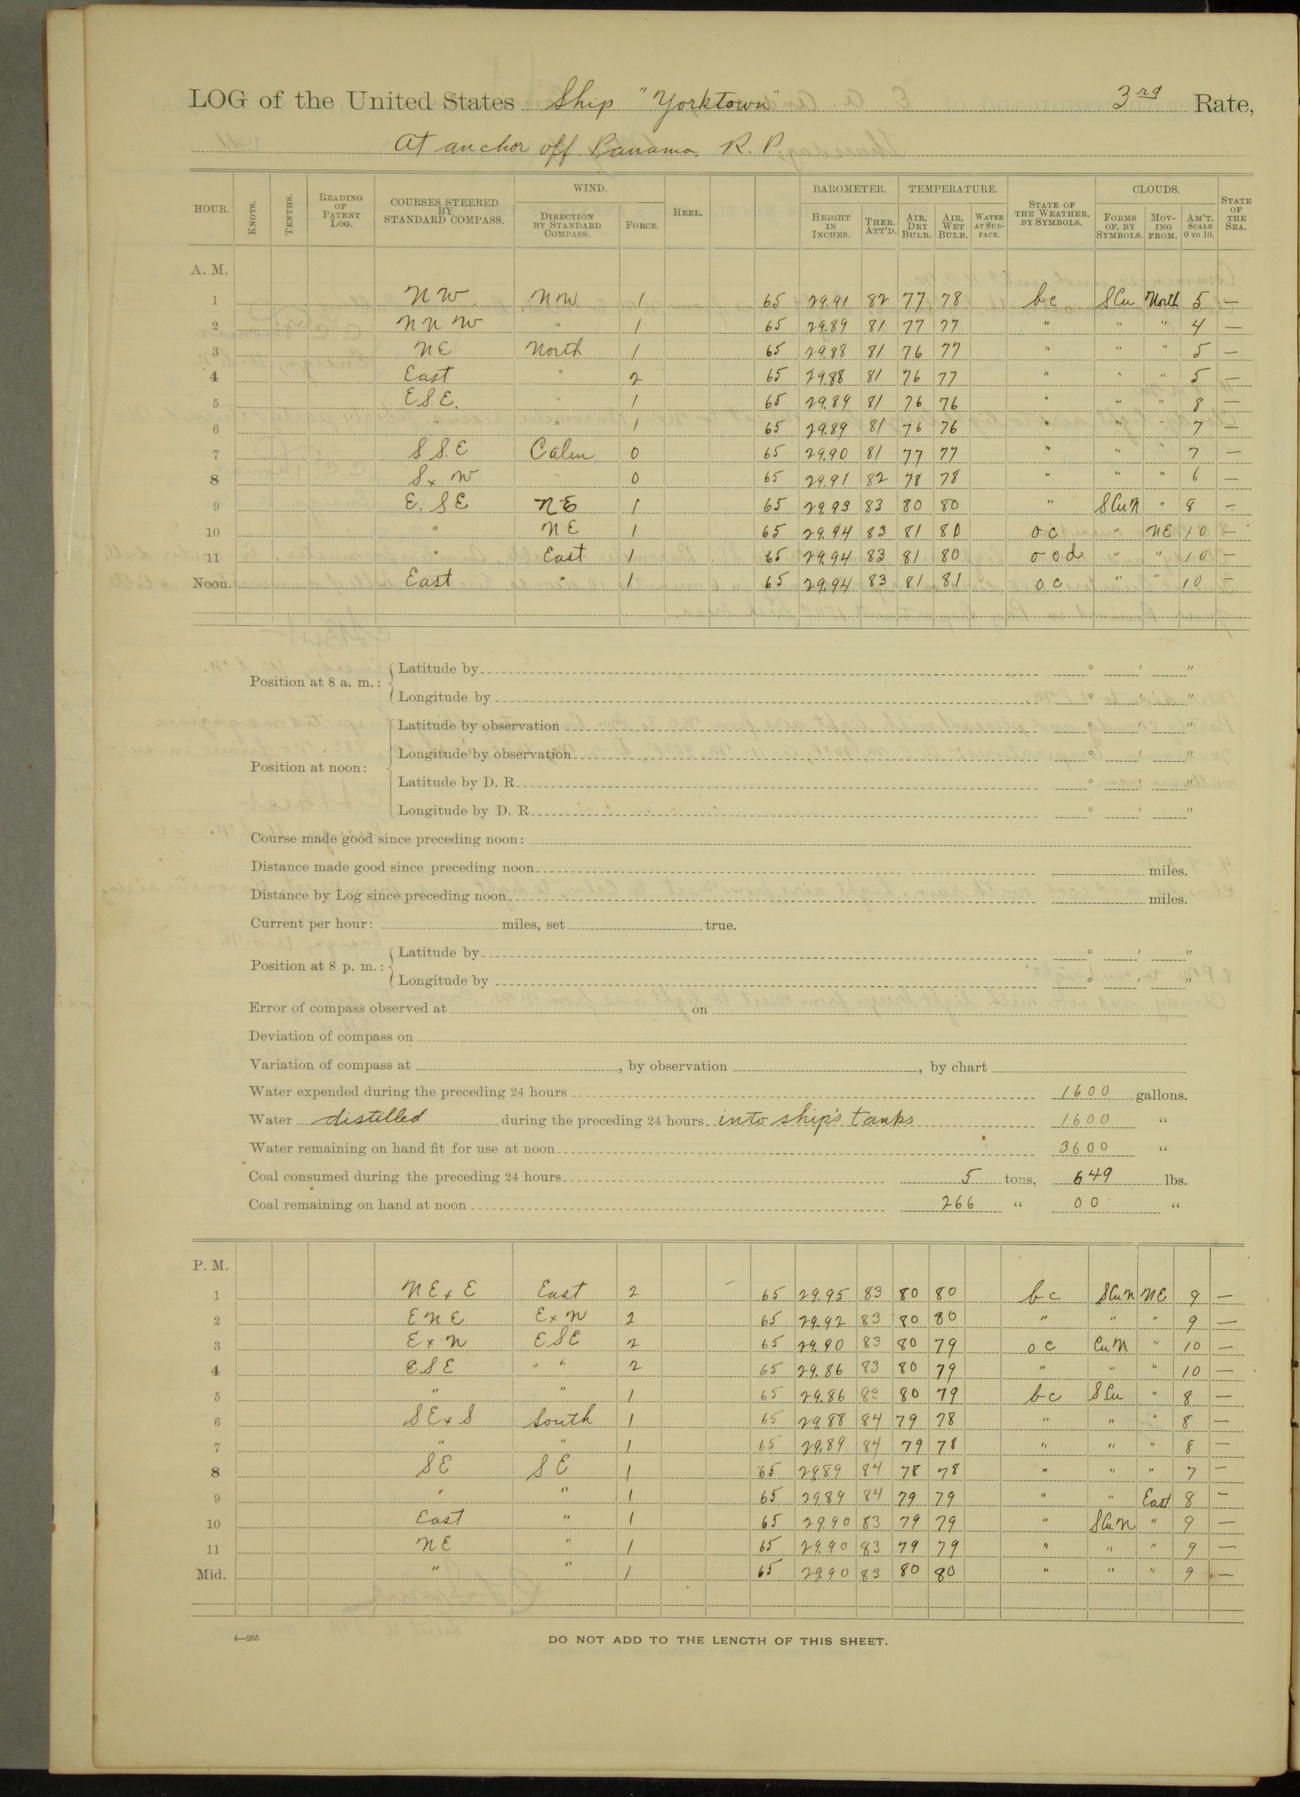 LOG of the United States Ship "Yorktown" 3rd Rate,
At anchor off Panama R. P.
HOUR. KNOTS. TENTHS. READING OF PATENT LOG. COURSES STEERED BY STANDARD COMPASS. WIND. DIRECTION BY STANDARD COMPASS. FORCE. HEEL. BAROMETER. HEIGHT IN INCHES. THER. ATT'D. TEMPERATURE. AIR, DRY BULB. AIR, WET BULB. WATER AT SURFACE. STATE OF THE WEATHER, BY SYMBOLS. CLOUDS. FORMS OF, BY SYMBOLS. MOVING FROM. AM'T. SCALE 0 TO 10. STATE OF THE SEA.
A. M.
1 NW NNW 1 65 29.91 82 77 78 bc SCu North 5 —
2 NNW " 1 65 29.89 81 77 77 " " " 4 —
3 NE North 1 65 29.88 81 76 77 " " " 5 —
4 East " 2 65 29.88 81 76 77 " " " 5 —
5 ESE. " 1 65 29.89 81 76 76 " " " 8 —
6 " " 1 65 29.89 81 76 76 " " " 7 —
7 SSE Calm 0 65 29.90 81 77 77 " " " 7 —
8 SxW 0 65 29.91 82 78 78 " " " 6 —
9 E.SE NE 1 65 29.93 83 80 80 " SCuN " 8 —
10 " NE 1 65 29.94 83 81 80 oc " NE 10 —
11 " East 1 65 29.94 83 81 80 ocd " " 10 —
Noon. East " 1 65 29.94 83 81 81 oc " " 10 —
Position at 8 a. m.: Latitude by ° ' "
Longitude by ° ' "
Position at noon: Latitude by observation ° ' "
Longitude by observation ° ' "
Latitude by D. R. ° ' "
Longitude by D. R. ° ' "
Course made good since preceding noon:
Distance made good since preceding noon miles.
Distance by Log since preceding noon miles.
Current per hour: miles, set true.
Position at 8 p. m.: Latitude by ° ' "
Longitude by ° ' "
Error of compass observed at on
Deviation of compass on
Variation of compass at , by observation , by chart
Water expended during the preceding 24 hours 1600 gallons.
Water distilled during the preceding 24 hours into ship's tanks 1600 "
Water remaining on hand fit for use at noon 3600 "
Coal consumed during the preceding 24 hours 5 tons, 649 lbs.
Coal remaining on hand at noon 266 " 00 "
P. M.
1 NExE East 2 65 29.95 83 80 80 bc SCuN NE 9 —
2 ENE ExN 2 65 29.92 83 80 80 " " " 9 —
3 ExN ESE 2 65 29.90 83 80 79 oc CuN " 10 —
4 ESE " " 2 65 29.86 83 80 79 " " " 10 —
5 " " 1 65 29.86 80 79 bc SCu " 8 —
6 SExS South 1 65 29.88 84 79 78 " " " 8 —
7 " " 1 65 29.89 84 79 78 " " " 8 —
8 SE SE 1 65 29.89 84 78 78 " " " 7 —
9 " " 1 65 29.89 84 79 79 " " East 8 —
10 East " 1 65 29.90 83 79 79 " SCuN " 9 —
11 NE " 1 65 29.90 83 79 79 " " " 9 —
Mid. " " 1 65 29.90 83 80 80 " " " 9 —
4—265
DO NOT ADD TO THE LENGTH OF THIS SHEET.